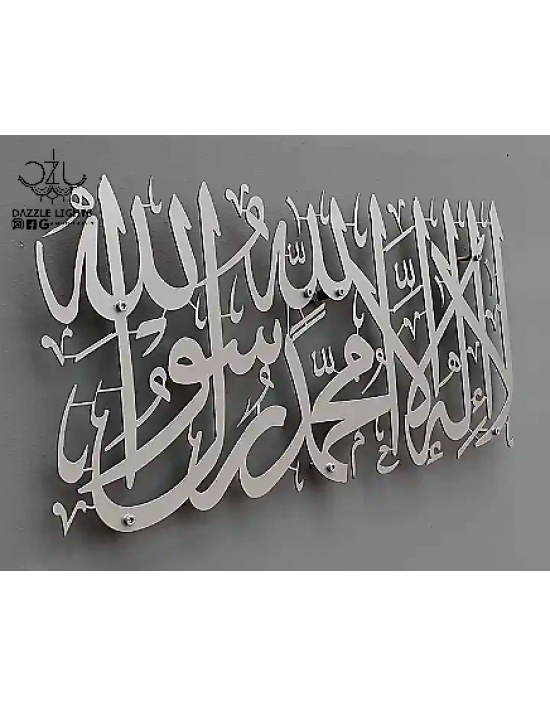 DAZZLE LIGHTS
لا إله إلا الله محمد رسول الله